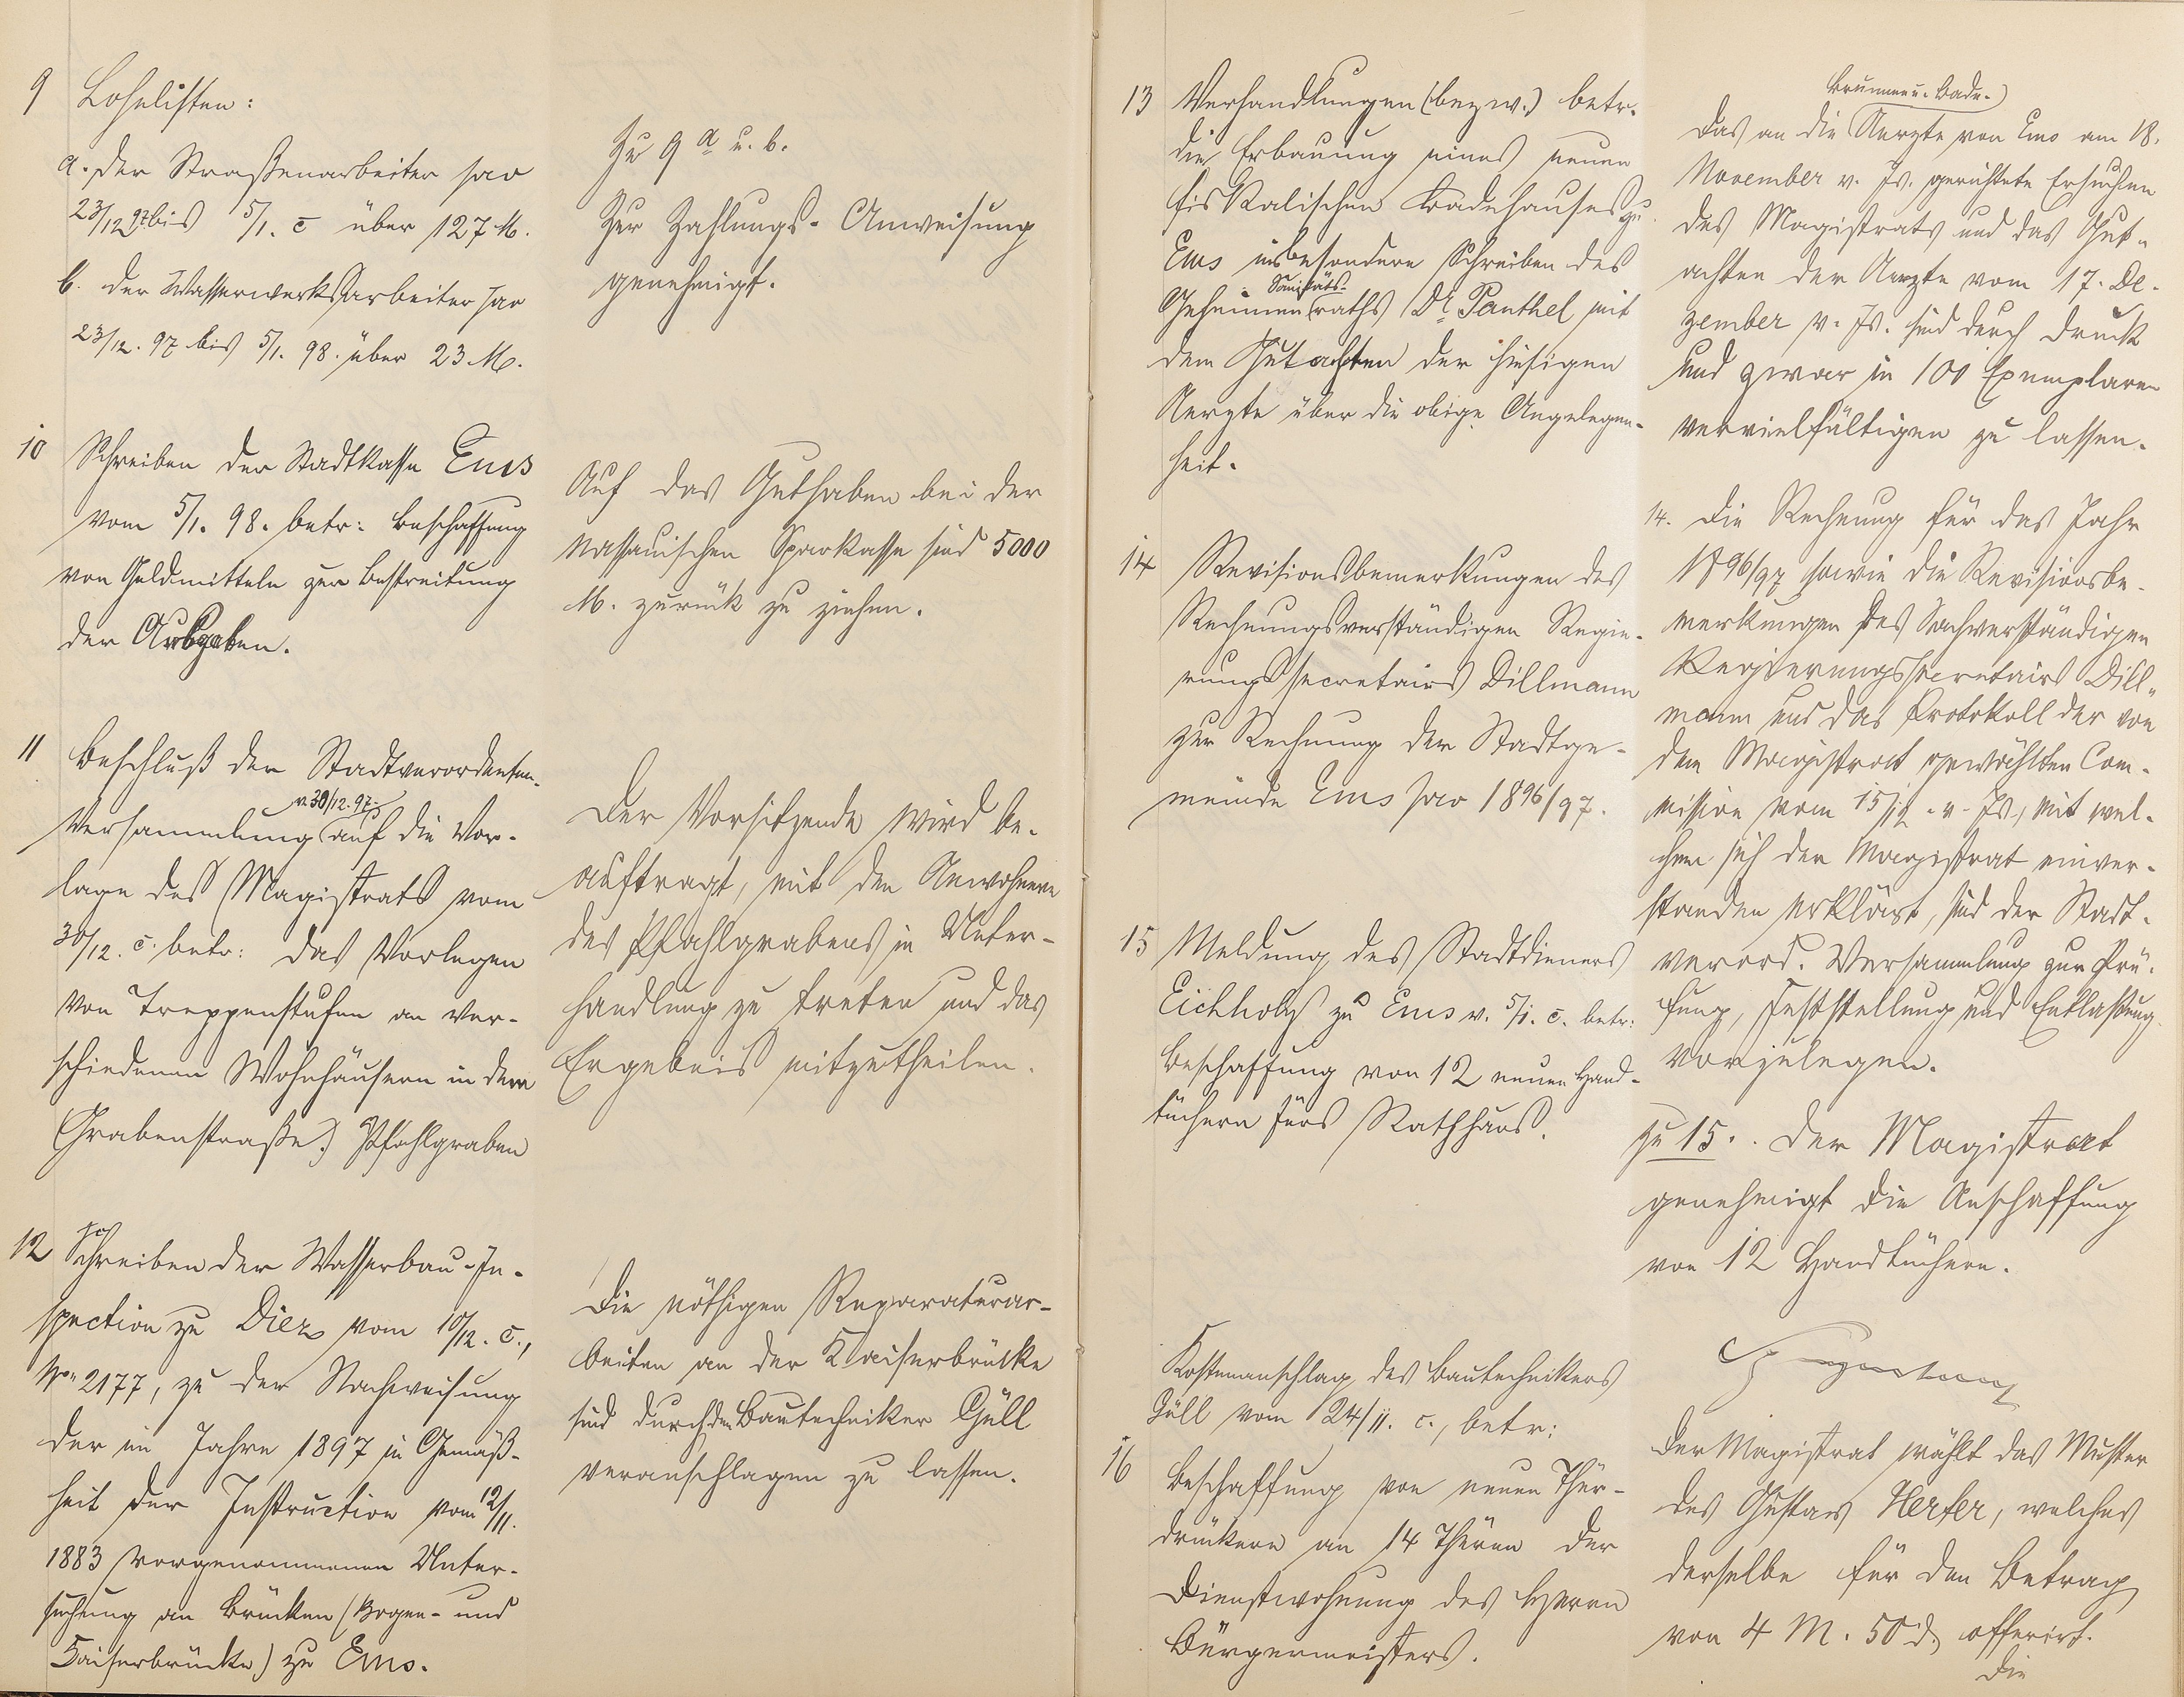 9 Lohnlisten:
a. der Straßenarbeiter pro
23/12 97 bis 5/1. c über 127 M.
b. der Wasserwerksarbeiter pro
23/12. 97 bis 5/1. 98. über 23 M.
Zu 9 a u. b.
Zur Zahlungs-Anweisung
genehmigt.
10 Schreiben der Stadtkasse Ems
vom 5/1. 98. betr: Beschaffung
von Geldmitteln zur Bestreitung
der Ausgaben.
Auf das Guthaben bei der
Nassauischen Sparkasse sind 5000
M. zurück zu ziehen.
11 Beschluß der Stadtverordneten-
v. 30/12. 97.
Versammlung auf die Vor-
lage des Magistrats vom
30/12. c. betr: das Vorlegen
von Treppenstufen an ver-
schiedenen Wohnhäusern in dem
(Grabenstraße?) Pfahlgraben
Der Vorsitzende wird be-
auftragt, mit den Anwohnern
des Pfahlgrabens in Unter-
handlung zu treten und das
Ergebnis mitzutheilen.
12 Schreiben der Wasserbau-In-
spection zu Diez vom 10/12. c.,
No. 2177, zu der Nachweisung
der im Jahre 1897 in Gemäß-
heit der Instruction vom 12/11.
1883 vorgenommenen Unter-
suchung an Brücken (Bogen- und
Kaiserbrücke) zu Ems.
Die nöthigen Reparaturar-
beiten an der Kaiserbrücke
sind durch den Bautechniker Güll
veranschlagen zu lassen.
13 Verhandlungen (bezw.) betr.
die Erbauung eines neuen
fiskalischen Badehauses zu
Ems insbesondere Schreiben des
Sanitäts-
Geheimen raths Dr. Panthel mit
dem Gutachten der hiesigen
Aerzte über die obige Angelegen-
heit.
Brunnen u. Bade-
Das an die Aerzte von Ems am 18.
November v. Js. gerichtete Ersuchen
des Magistrats und das Gut-
achten der Aerzte vom 17. De-
zember v. Js. sind durch Druck
und zwar in 100 Exemplaren
vervielfältigen zu lassen.
14 Revisionsbemerkungen des
Rechnungsverständigen Regie-
rungssecretairs Dillmann
zur Rechnung der Stadtge-
meinde Ems pro 1896/97.
14. Die Rechnung für das Jahr
1896/97 sowie die Revisionsbe-
merkungen des Sachverständigen
Regierungssecretairs Dill-
mann und das Protokoll der von
dem Magistrat gewählten Com-
mission vom 15/12. v. Js., mit wel-
chem sich der Magistrat einver-
standen erklärt, sind der Stadt-
verord. Versammlung zur Prü-
fung, Feststellung und Entlastung
vorzulegen.
15 Meldung des Stadtdieners
Eichholz zu Ems v. 5/1. c. betr:
Beschaffung von 12 neuen Hand-
tüchern fürs Rathhaus.
Zu 15. Der Magistrat
genehmigt die Anschaffung
von 12 Handtüchern.
Kostenanschlag des Bautechnikers
Güll vom 24/11. c., betr:
16 Beschaffung von neuen Thür-
drückern an 14 Thüren der
Dienstwohnung des Herrn
Bürgermeisters.
Der Magistrat wählt das Muster
des Gustav Herfer, welches
derselbe für den Betrag
von 4 M. 50 d offerirt.
Die